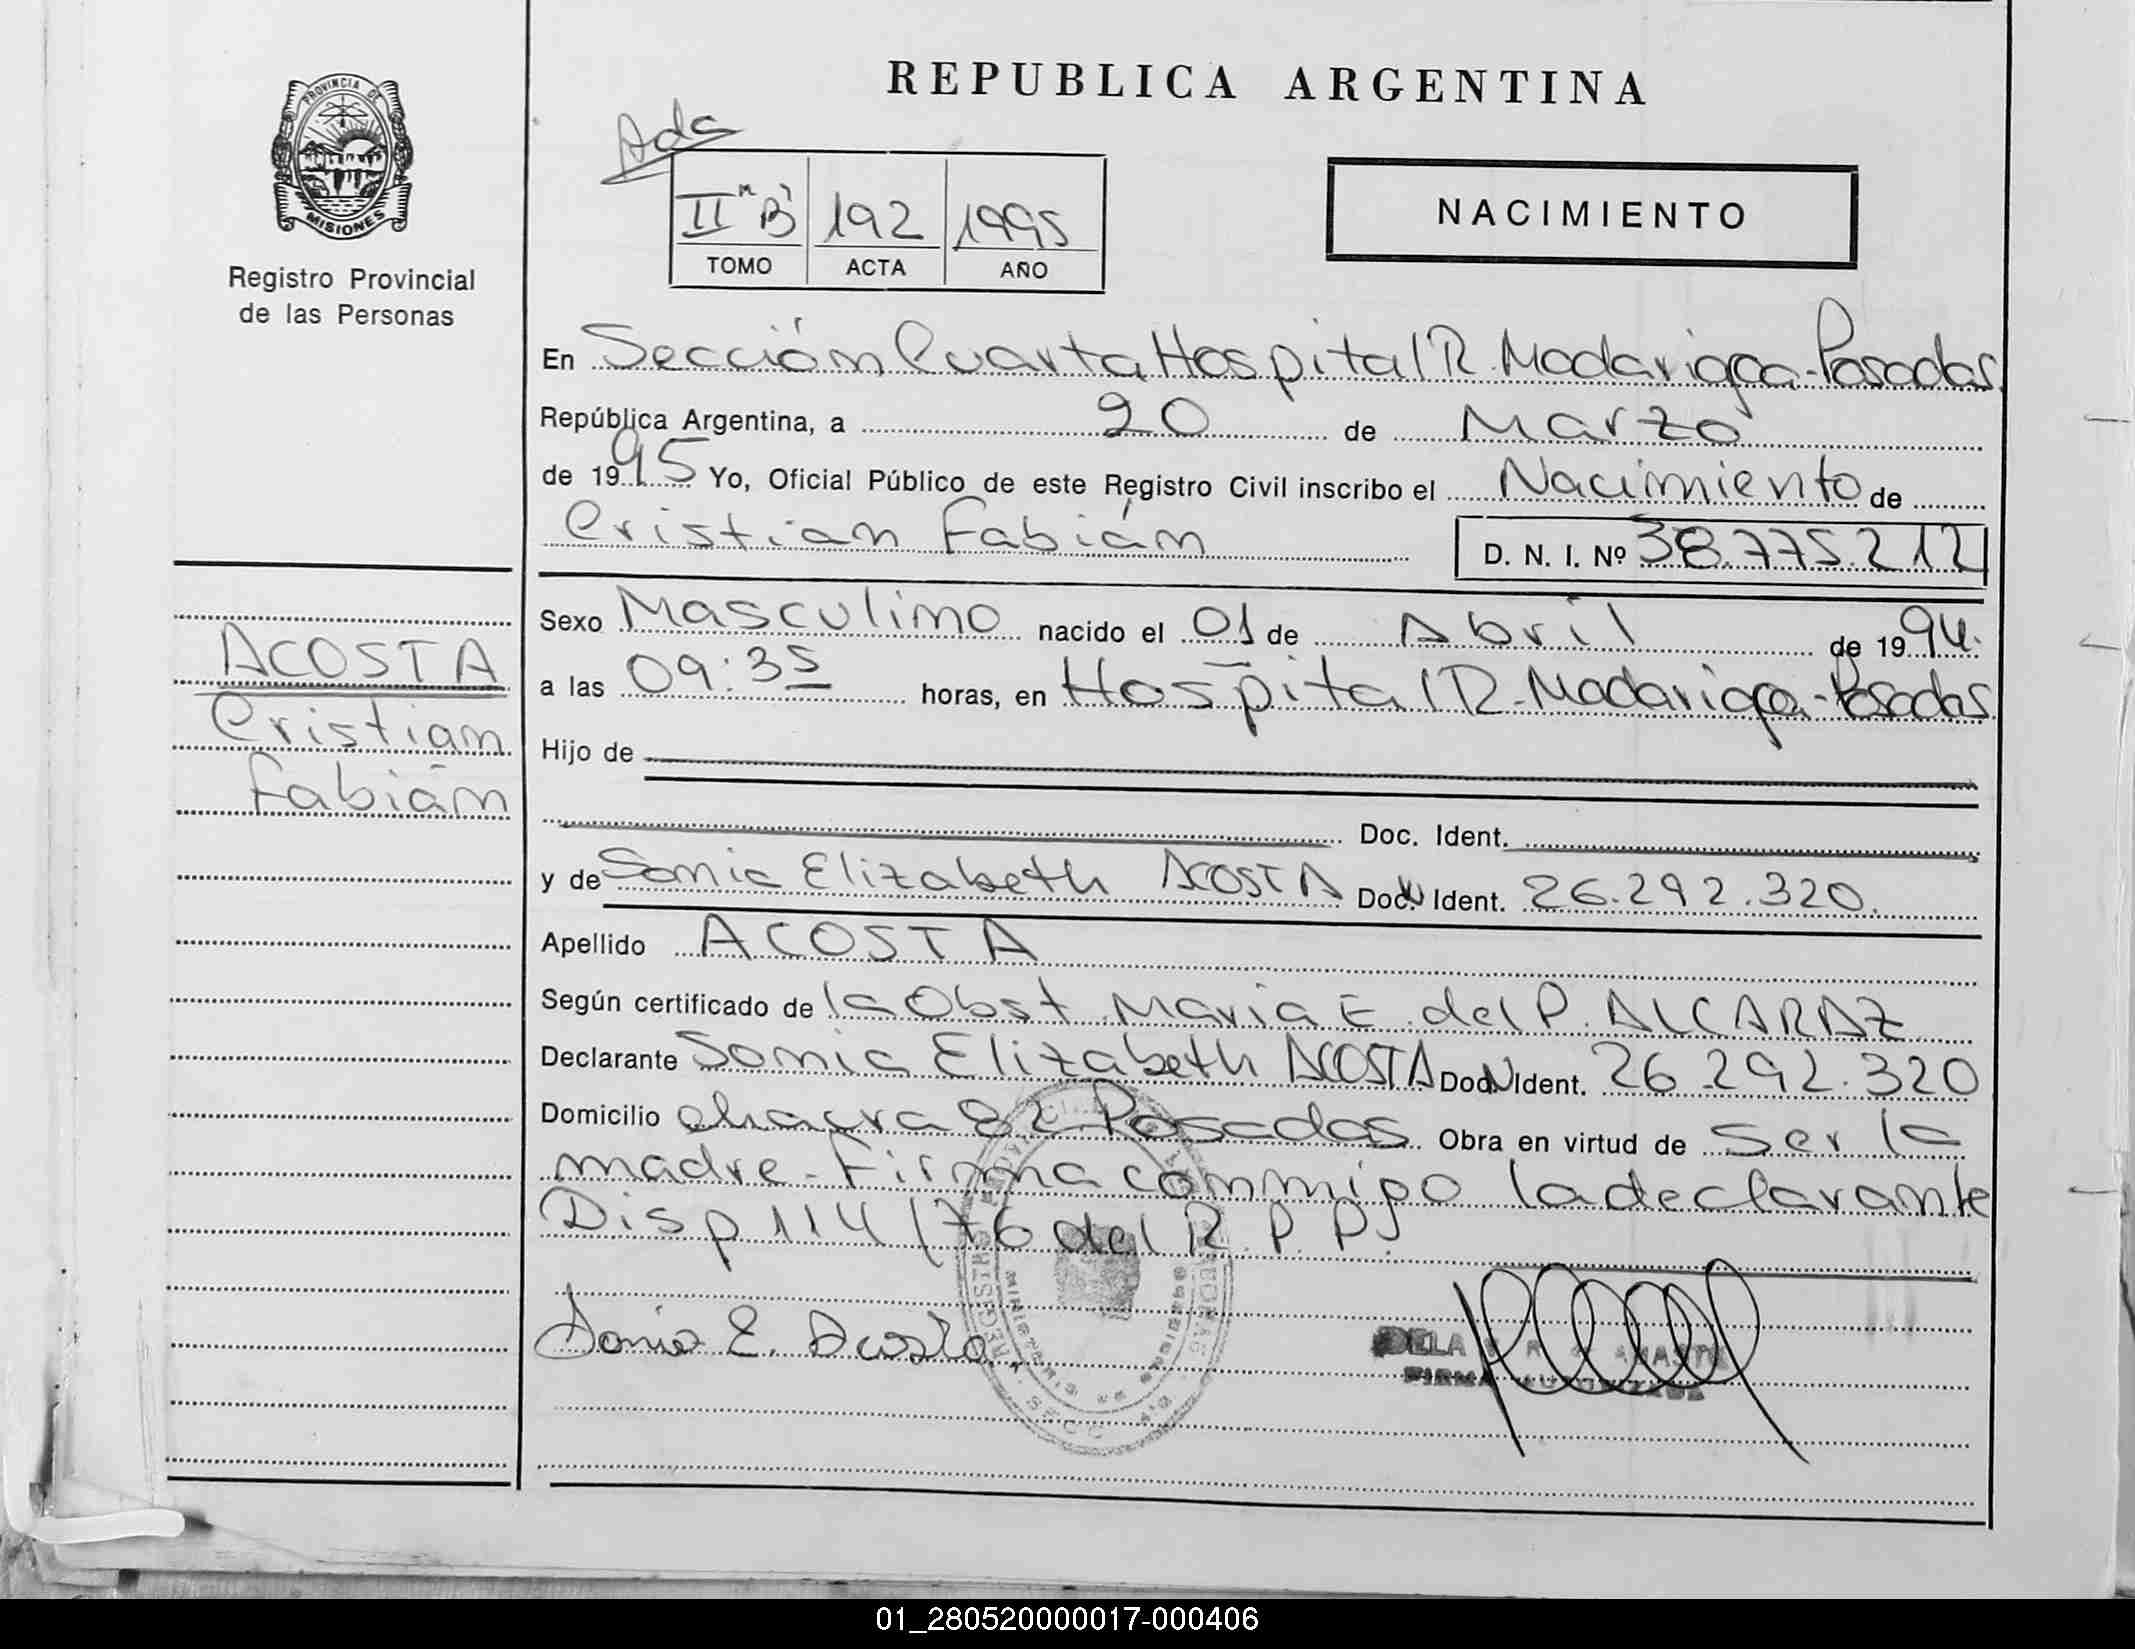 REPUBLICA ARGENTINA
PROVINCIA DE
MISIONES
Registro Provincial
de las Personas
Ads
II "B" 192 1995
TOMO ACTA AÑO
NACIMIENTO
En Sección Cuarta Hospital R. Madariaga-Posadas.
República Argentina, a 20 de Marzo
de 1995 Yo, Oficial Público de este Registro Civil inscribo el Nacimiento de
Cristian Fabián D. N. I. Nº 38.775.212
Sexo Masculino nacido el 01 de Abril de 1994.
a las 09:35 horas, en Hospital R. Madariaga-Posadas.
Hijo de
Doc. Ident.
y de Sonia Elizabeth ACOSTA Doc. Ident. 26.292.320.
Apellido ACOSTA
Según certificado de la Obst. Maria E. del P. ALCARAZ
Declarante Sonia Elizabeth ACOSTA Doc. Ident. 26.292.320
Domicilio chacra 82 Posadas Obra en virtud de ser la
madre-Firma conmigo la declarante
Disp 114/76 del R.P.P.
Sonia E. Acosta.
ACOSTA
Cristian
Fabián
01_280520000017-000406